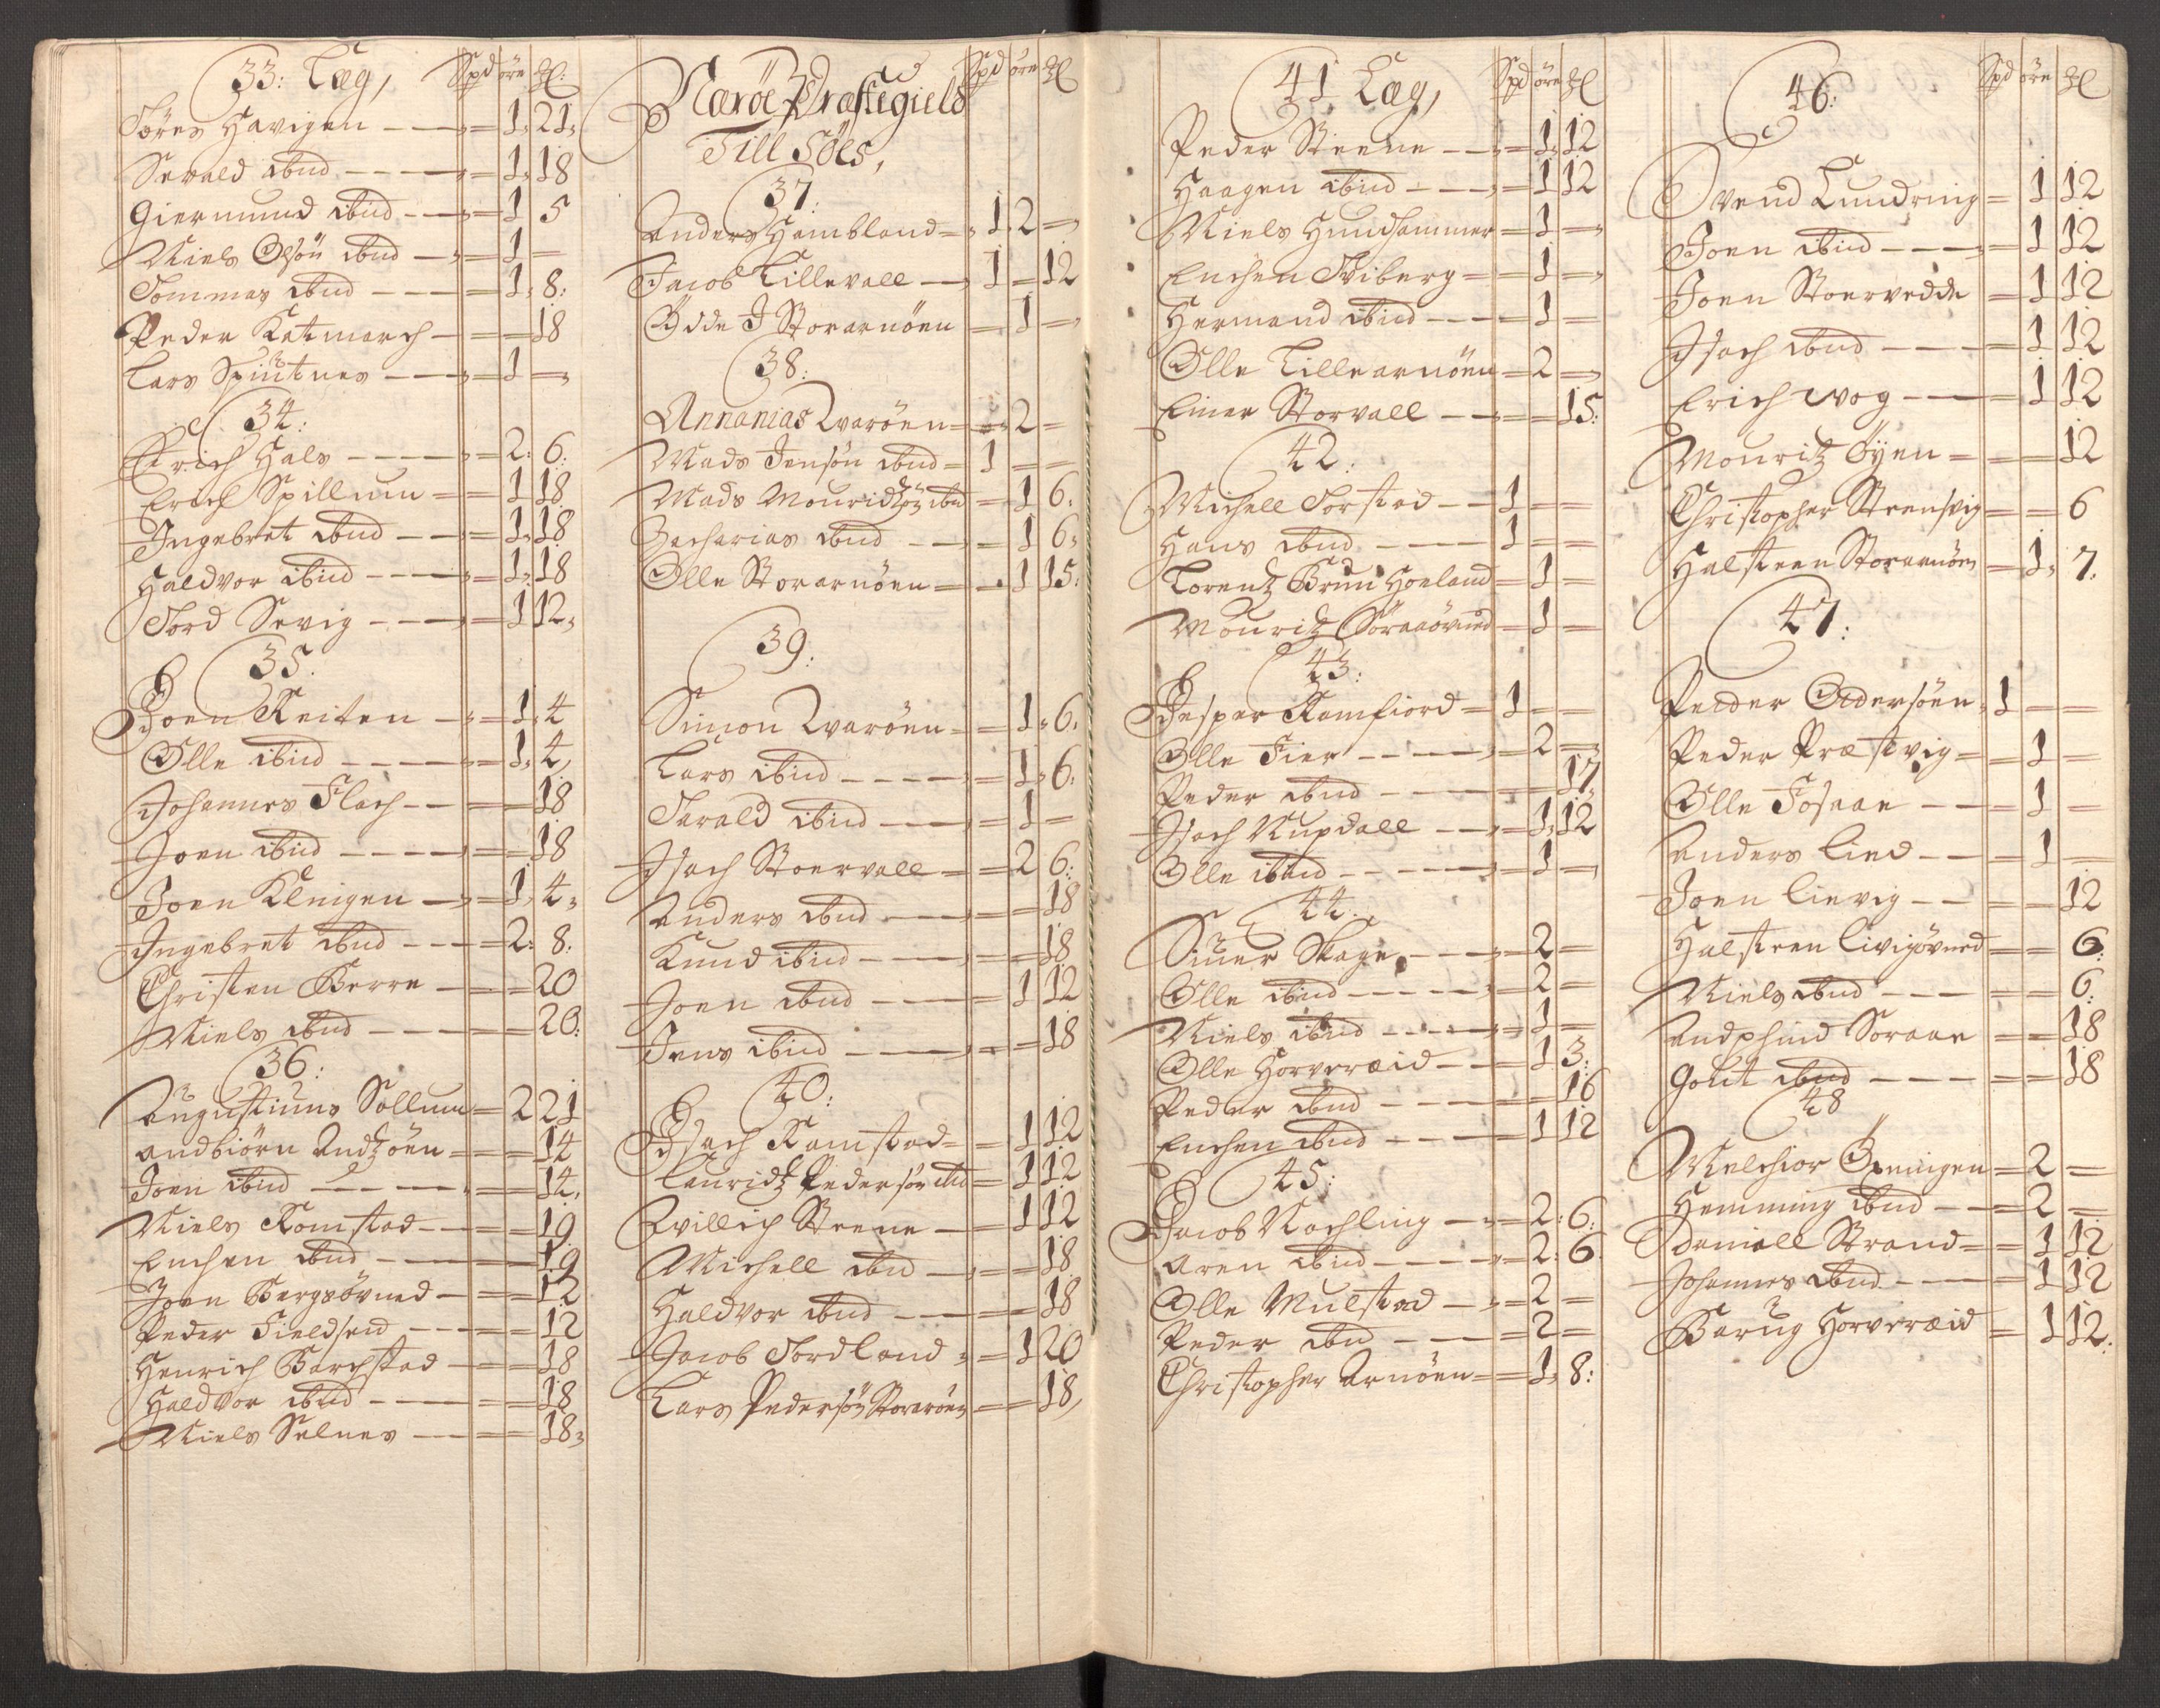 33: Læg, Spd öre ℔:
Töres Havigen - - = 1: 21:
Sevald ibid - - - = 1: 18
Giermund ibid - - = 1 5
Niels Olsön ibid - = 1 -
Tommas ibid - - = 1: 8:
Peder Katmarch - = - 18
Lars Spiutnes - - = 1 -
34:
Erich Hals - - - = 2: 6:
Erich Spillum = = 1 18
Ingebret ibid - - = 1: 18
Haldvor ibid - - - = 1: 18
Tord Sevig - - - = 1 12,
35.
Joen Reiten - = 1: 4
Olle ibid - - - = 1: 4,
Johannes Flach - - = - 18
Joen ibid - - - - = - 18
Joen Klingen - = 1, 4,
Ingebret ibid - - - = 2: 8:
Christen Berre - - = - 20
Niels ibid - - - = - 20:
36:
Augustinus Sollum = 2 21
Andbiörn Andzöen = = - 14
Joen ibid - - - = - 14,
Niels Romstad - - = - 19
Enchen ibid - - - = - 19
Joen Bergsövned - = - 12
Peder Fieldsend - - = - 12
Henrich Barchstad - = - 18
Haldvor ibid - - - = - 18
Niels Selnes - - = - 18,
Næröe Præstegield Spd öre ℔
Till Söes,
37:
Anders Hambland = , 1 . 2 =
Jacob Lillevall - , 1 - 12
Odde J Storarnöen - 1 -
38:
Annanias Qvaröen = = 2 =
Mads Jensön ibid = 1 - -
Mads Mouridzön ibid = 1 6:
Zacharias ibid - - = 1 6,
Olle Storarnöen = = 1 15:
39:
Simon Qvaröen = = 1: 6:
Lars ibid - - - - = 1: 6:
Tarald ibid - - - = 1 -
Isach Stoervall = = 2 6:
Anders ibid - - - = - 18
Knud ibid - - - = - 18
Joen ibid - - - = 1 12
Jens ibid - - - = - 18
40:
Isach Ramstad = = 1 12
Lauridz Pedersön ibid = 1 12
Willich Steene - = 1 12
Michell ibid - - = - 18
Haldvor ibid - - = - 18
Jacob Tordland = = 1 20
Lars Pedersön Storaröen = - 18,
41 Læg, Spd öre ℔
Peder Steene - - = 1: 12
Haagen ibid - - - = 1 12
Niels Hundhammer = 1 -
Enchen Sviberg = = 1 -
Hermand ibid - - = 1 -
Olle Lillearnöen = 2 -
Einer Storvall - - = - 15:
42:
Michell Torstad - - 1 - -
Hans ibid - - - 1 = =
Lorentz Brun Hoeland = 1 -
Mouritz Söraaövned = 1 -
43:
Jesper Ramfiord = 1 - -
Olle Fier - - - - = 2 -
Peder ibid - - - - = - 17
Isach Kupdall - - = 1: 12
Olle ibid - - - - = 1 -
44:
Siuer Skage, - - = 2 -
Olle ibid - - - - = 2 -
Niels ibid - - - - = 1 -
Olle Horveræid - - = 1 3:
Peder ibid - - - - = - 16
Enchen ibid - - - = 1 12
45:
Jacob Kochling - - = 2: 6:
Aren ibid - - - - = 2: 6
Olle Mulstad - - = 2 -
Peder ibid - - - = 2 -
Christopher Arnöen = = 1, 8:
46: Spd öre ℔
Svend Lundring = 1 12
Joen ibid - - - = 1 12
Joen Stoervedde = 1 12
Isach ibid - - - = 1 12
Erich Wog - - = 1 12
Mouritz Öyen = = - 12
Christopher Steensvig = - 6
Halsteen Storarnöen = 1, 7.
47:
Peder Andersöen, 1 - -
Peder Præstvig = = 1 -
Olle Fosaae - - = 1 -
Anders Lied - - = 1 -
Joen Lievig - - = - 12
Halsteen Livigövned = - 6:
Niels ibid - - - = - 6:
Andphind Soraae = = 18
Gout ibid - - - = = 18
48
Melchior Öxningen = 2 -
Hemming ibid - - = 2 -
Daniell Strand = = 1 12
Johannes ibid - - - = 1 12
Barug Horveræid = 1 12.